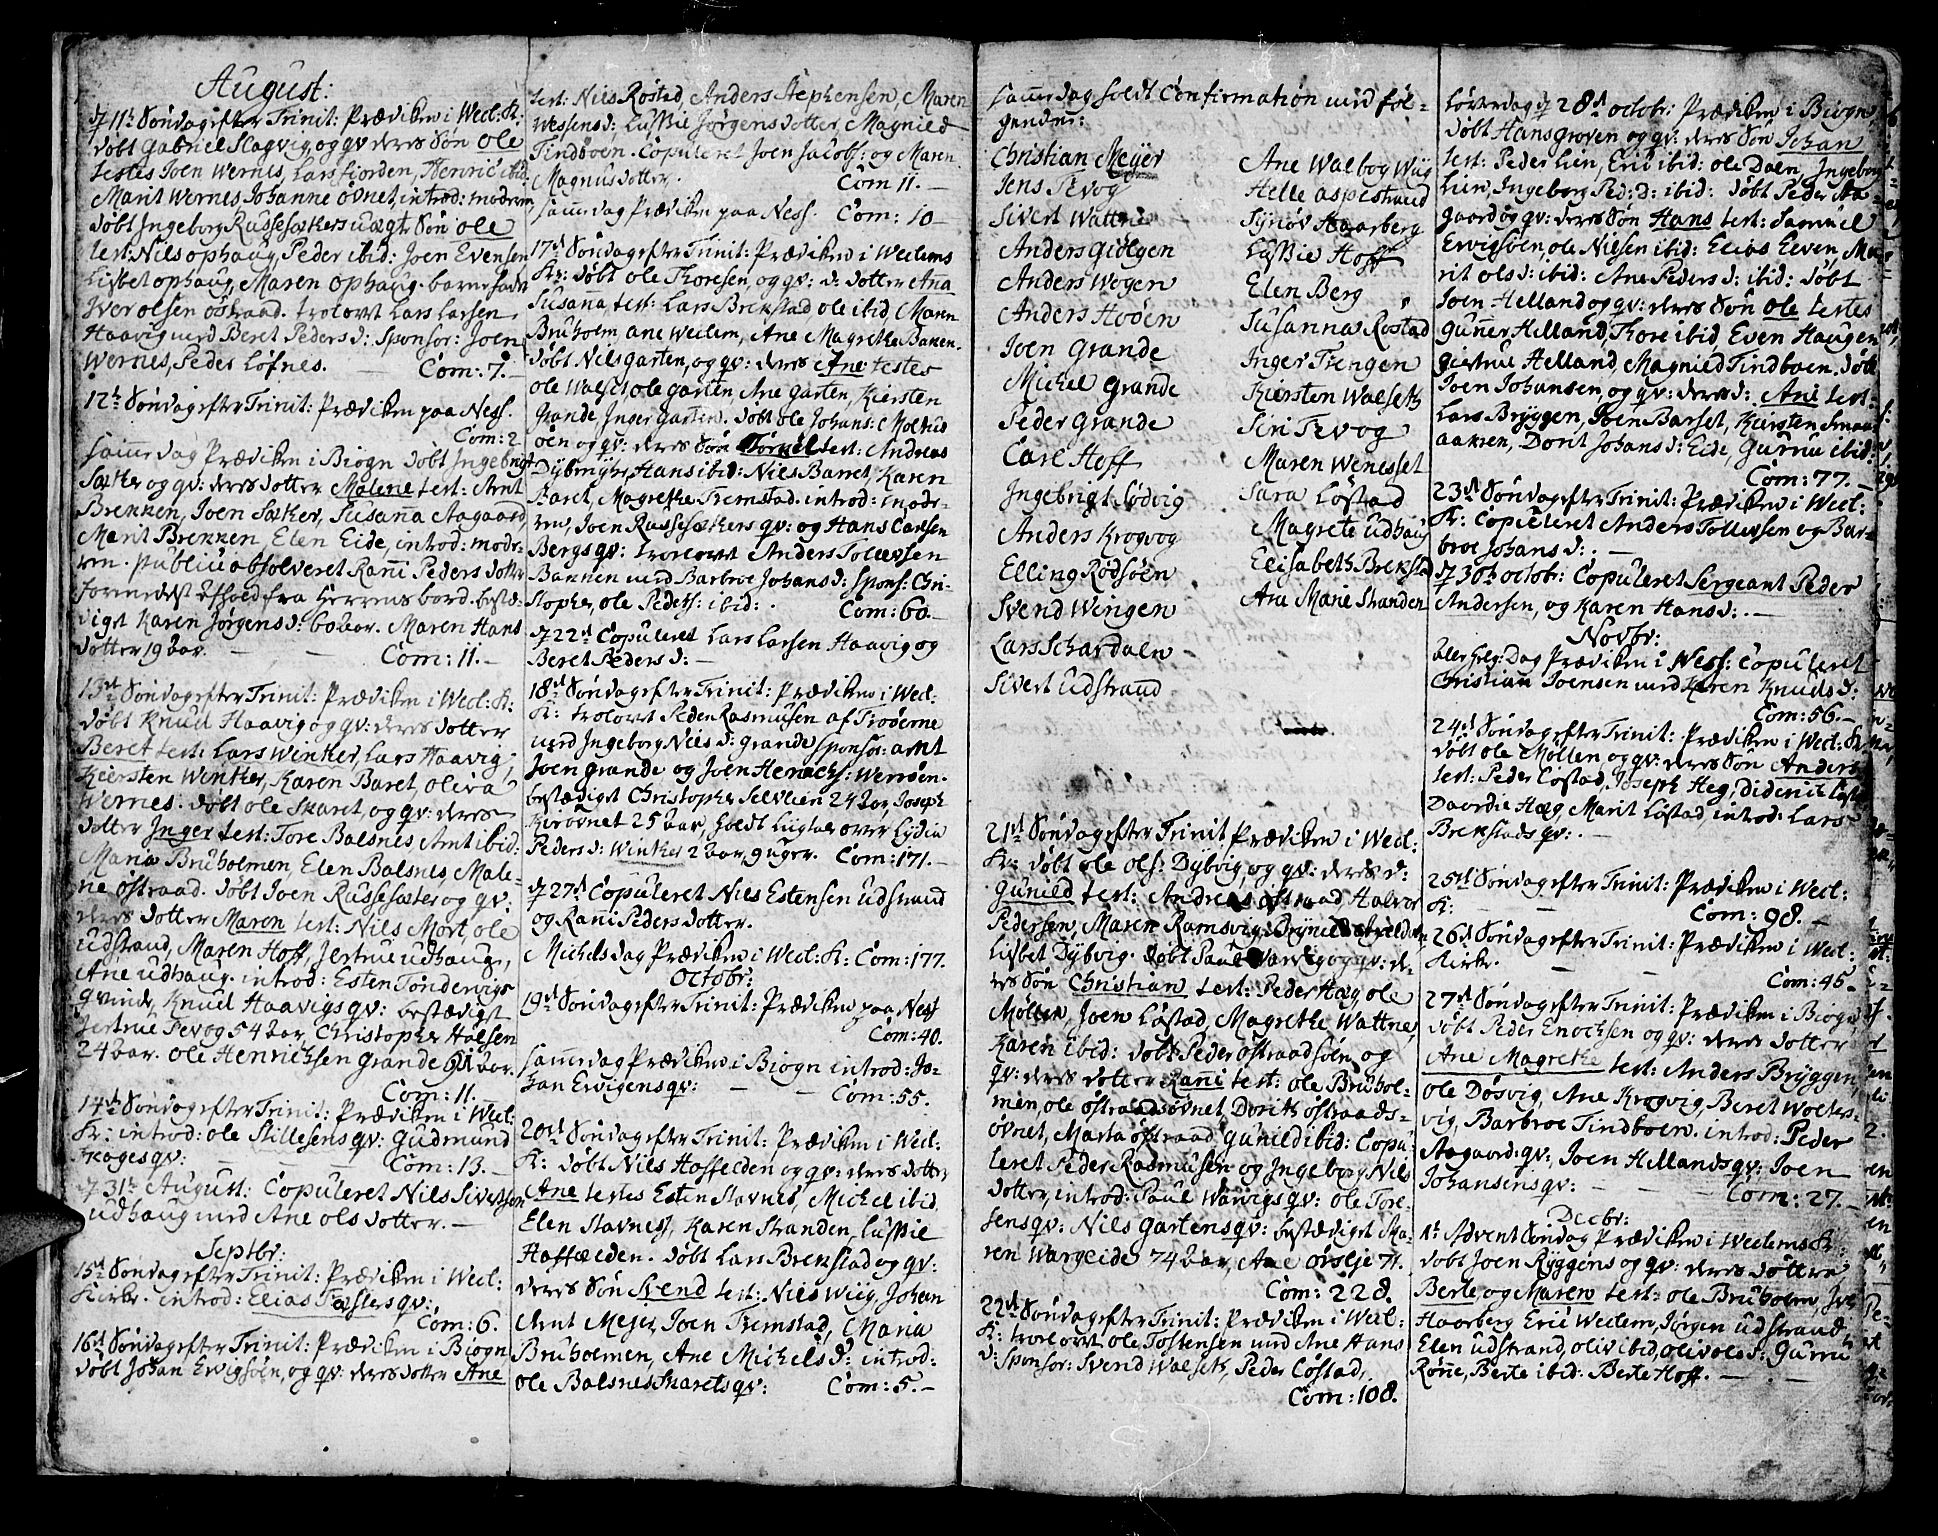 August:
11te Søndag efter Trinit: Prædiken i Wecl: K:
døbt Gabriel Slagvig, og qv deres Søn Ole
testes Joen Wernes, Lars fiorden, Henric ibid:
Marit Wernes, Johanne øvnet, introd: moderen
døbt Ingeborg Russesæters uægt Søn ole
test: Nils ophaug, Peder ibid: Joen Evensen
Lisbet ophaug, Maren ophaug. barnefader
Iver olsen østraad. trolovet Lars Larsen
Haavig med Beret Peders d: Sponsor: Joen
Wernes, Peder Løfnes. Com: 7.
12te Søndag efter Trinit: Prædiken paa Ness.
Com: 2
samme dag Prædiken i Biogn døbt Ingebrigt
Sæter og qv: deres dotter Malene test: Arnt
Brekken, Joen Sæter, Susanna Aagaard,
Marit Brekken, Elen Eide, introd: mode-
ren. publice absolveret Ranni Peders dotter
formedelst afhold fra Herrens bord. bestæ-
diget Karen Jørgens d: 60 aar. Maren Hans
dotter 19 aar. Com: 11.
13de Søndag efter Trinit: Prædiken i Wecl: K:
døbt Knud Haavig og qv: deres dotter
Beret test: Lars Winker, Lars Haavig,
Kiersten Winker, Karen Baret, oliva
Wernes. døbt ole Skaret og qv: deres
dotter Inger test: Tore Balsnes Arnt ibid:
Maria Bruholmen, Elen Balsnes, Male-
ne østraad. døbt Joen Russesæter og qv:
deres dotter Maren test: Niels Mort, ole
udstrand, Maren Hoff, Jertrue udhaug,
Ane udhaug. introd: Esten Tondervigs
qvinde, Knud Haavigs qv: bestædiget
Jertrue Tevog 54 aar, Christopher Halsen
24 aar. ole Henrichsen Grande 91 aar.
Com: 11.
14de Søndag efter Trinit: Prædiken i Wecl:
Kr: introd: ole Stillesens qv: Gudmund
Krages qv: Com: 13.
31te August: Copuleret Niels Sivertsen
udhaug med Ane ols dotter.
Septbr:
15de Søndag efter Trinit: Prædiken i Wecl:
Kirke. introd: Elias qv:
Com: 6.
16de Søndag efter Trinit: Prædiken i Biogn
døbt Johan Ewigsøen, og qv: deres dotter Ane
test: Niels Rostad, Anders Stephensen, Maren
Wessens d: Lussie Jørgens dotter, Magnild
Tindboen. Copuleret Joen Jacobs: og Maren
Magnus dotter. Com 11.
samme dag Prædiken paa Ness. Com: 10
17de Søndag efter Trinit: Prædiken i Weclems
Kr: døbt ole Thoresen, og qv: d: dotter Anna
Susana, test: Lars Brekstad ole ibid, Maren
Bruholm, ane Weclem, Ane Magrethe Bakken.
døbt Niels garten, og qv: deres Ane testes
ole Walset, ole garten Ane Garten, Kiersten
Grande, Inger garten. døbt ole Johans: Koltus
øen og qv: deres Søn test: Andreas
Dybvigh, Hans ibid: Niels Barret, Karen
Baret, Magrethe Tremstad. introd: mode-
ren, Joen Russesæters qv: og Hans Carlsen
Bergs qv: trolovet Anders Tollevsen
Bakken med Barbroe Johans d: Spons: Chri-
stopher, ole Peders: ibid: Com: 60.
22de Copuleret Lars Larsen Haavig og
Beret Peders d:
18de Søndag efter Trinit: Prædiken i Wecl:
K: trolovet Peder Rasmusen af Trøerne
med Ingeborg Niels d: grande sponsor: arnt
Joen grande og Joen Henrichs: Werrøen.
bestædiget Christopher Selvlien 24 aar, Joseph
Kirøvnet 25 aar, holdt Liigtale over Lydia
Peders d: Winker 2 aar, 9 uger. Com: 171.
27de Copuleret Niels Estensen Udstrand
og Rani Peders dotter.
Michelsdag Prædiken i Wecl: K: Com: 177.
Octobr:
19de Søndag efter Trinit: Prædiken paa Ness
Com: 40.
samme dag Prædiken i Biogn introd: Jo-
han Ewigens qv: Com: 55.
20de Søndag efter Trinit: Prædiken i Wecl:
K: døbt Niels Hoffelden og qv: deres dotter
Ane testes Esten Stavnes, Michel ibid
Elen Stavnes, Karen Stranden, Lussie
Hoffelden. døbt Lars Brekstad og qv:
deres Søn Svend test: Niels Wiig, Johan
Arnt Mejer, Joen Tremstad, Maria
Bruholmen, Ane Michels d: introd:
ole Balsnes Skarets qv: Com: 5.
samme dag holdt Confirmation med føl-
gende:
Christian Meyer
Jens Tevog
Sivert Wattne
Anders Giølgen
Anders Wegen
Anders Høøen
Joen Grande
Michel Grande
Peder Grande
Carl Hoff
Ingebrigt Lødvig
Anders Krogvog
Elling Rødsøen
Svend Wingen
Lars Schardalen
Sivert Udstrand
Ane Walbog Wiig
Helle aspestrand
Synøv Haarberg
Lussie Hoff
Elen Berg
Susanna Rostad
Inger Trengen
Kiersten Walseth
Siri Tevog
Maren Wenesset
Sara Løstad
Magrete udhaug
Elisabeth Brekstad
Ane Marie Stranden
21de Søndag efter Trinit Prædiken i Wecl:
Kr: døbt ole ols: Dybvig, og qv: deres d:
Gunild test: Andreas østraad Halvor
Pedersen, Maren Ramsvig, Brynild
Lisbet Dybvig. døbt Paul Warvig og qv: de-
res Søn Christian test: Peder Hæg ole
Møllen, Joen Løstad, Magrethe Wattne,
Karen ibid: døbt Peder østraadsøen og
qv: deres dotter Ranni test: ole Bruhol-
men, ole østraadsøvnet, Dorith østraads-
øvnet, Marta østraad, Gunild ibid: Copu-
leret Peder Rasmusen og Ingeborg Niels
dotter, introd: Paul Warvigs qv: ole Tore-
sens qv: Niels Gartens qv: bestædiget Ma-
ren Wargeide 74 aar, Ane ørslje 71.
Com: 228.
22de Søndag efter Trinit: Prædiken i Wecl:
K: trolovet ole Tostensen med Ane Hans
d: Sponsor: Svend Walseth, Peder Løstad,
Com: 108.
Løverdag 28de octobr: Prædiken i Biogn
døbt Hans groven og qv: deres Søn Johan
test: Peder Lien, Eric ibid: ole Dalen, Ingeborg
Lien, Ingeborg Ped: d: ibid: døbt Peder Aa-
gaard og qv: deres Søn Hans test: Samuel
Ewigsøen, ole Nielsen ibid: Elias Eeven, Ma-
rit ols d: ibid: Ane Peders d: ibid: døbt
Joen Helland og qv: deres Søn ole testes
Gunner Helland, Thore ibid, Even Haugen
giertrue Helland, Magnild Tindboen. døbt
Joen Johansen, og qv: deres d: Ane test:
Lars Bryggen, Joen Barset, Kiersten Smaa
aamen, Dorit Johans d: Eide, Gurru ibid:
Com: 77.
23de Søndag efter Trinit: Prædiken i Wecl:
Kr: Copuleret Anders Tollevsen og Bar-
broe Johans d:
30te octobr: Copuleret Sergeant Peder
Andersen, og Karen Hans d:
Novbr:
alle helg: Dag Prædiken i Ness: Copuleret
Christian Joensen med Karen Knuds d:
Com: 56.
24de Søndag efter Trinit: Prædiken i Wecl: K
døbt ole Møllen og qv: deres Søn Anders
test: Peder Løstad, Joseph Heg, Didenic Løstad
Daardie Hæg, Marit Løstad, introd: Lars
Brekstads qv:
25de Søndag efter Trinit: Prædiken i Wecl:
K: Com: 98.
26de Søndag efter Trinit: Prædiken i Wecl:
Kirke. Com: 45.
27de Søndag efter Trinit: Prædiken i Biogn
døbt Peder Enochsen og qv: deres dotter
Ane Magrethe test: Anders Bryggen,
ole Døsvig, Ane Krogvig, Beret Wolters-
vig, Barbroe Tindboen. introd: Peder
Aagaards qv: Joen Hellands qv: Joen
Johansens qv: Com: 27.
Decbr:
1te Advent Søndag Prædiken i Weclems Kr:
døbt Joen Ryggens og qv: deres døttre
Berte, og Maren test: ole Bruholm, Iver
Haarberg Eric Weclem, Jørgen udstrand,
Elen udstrand, oliv ibid, oliv ols d: Gurru
Rønne, Berte ibid: Berte Hoff.